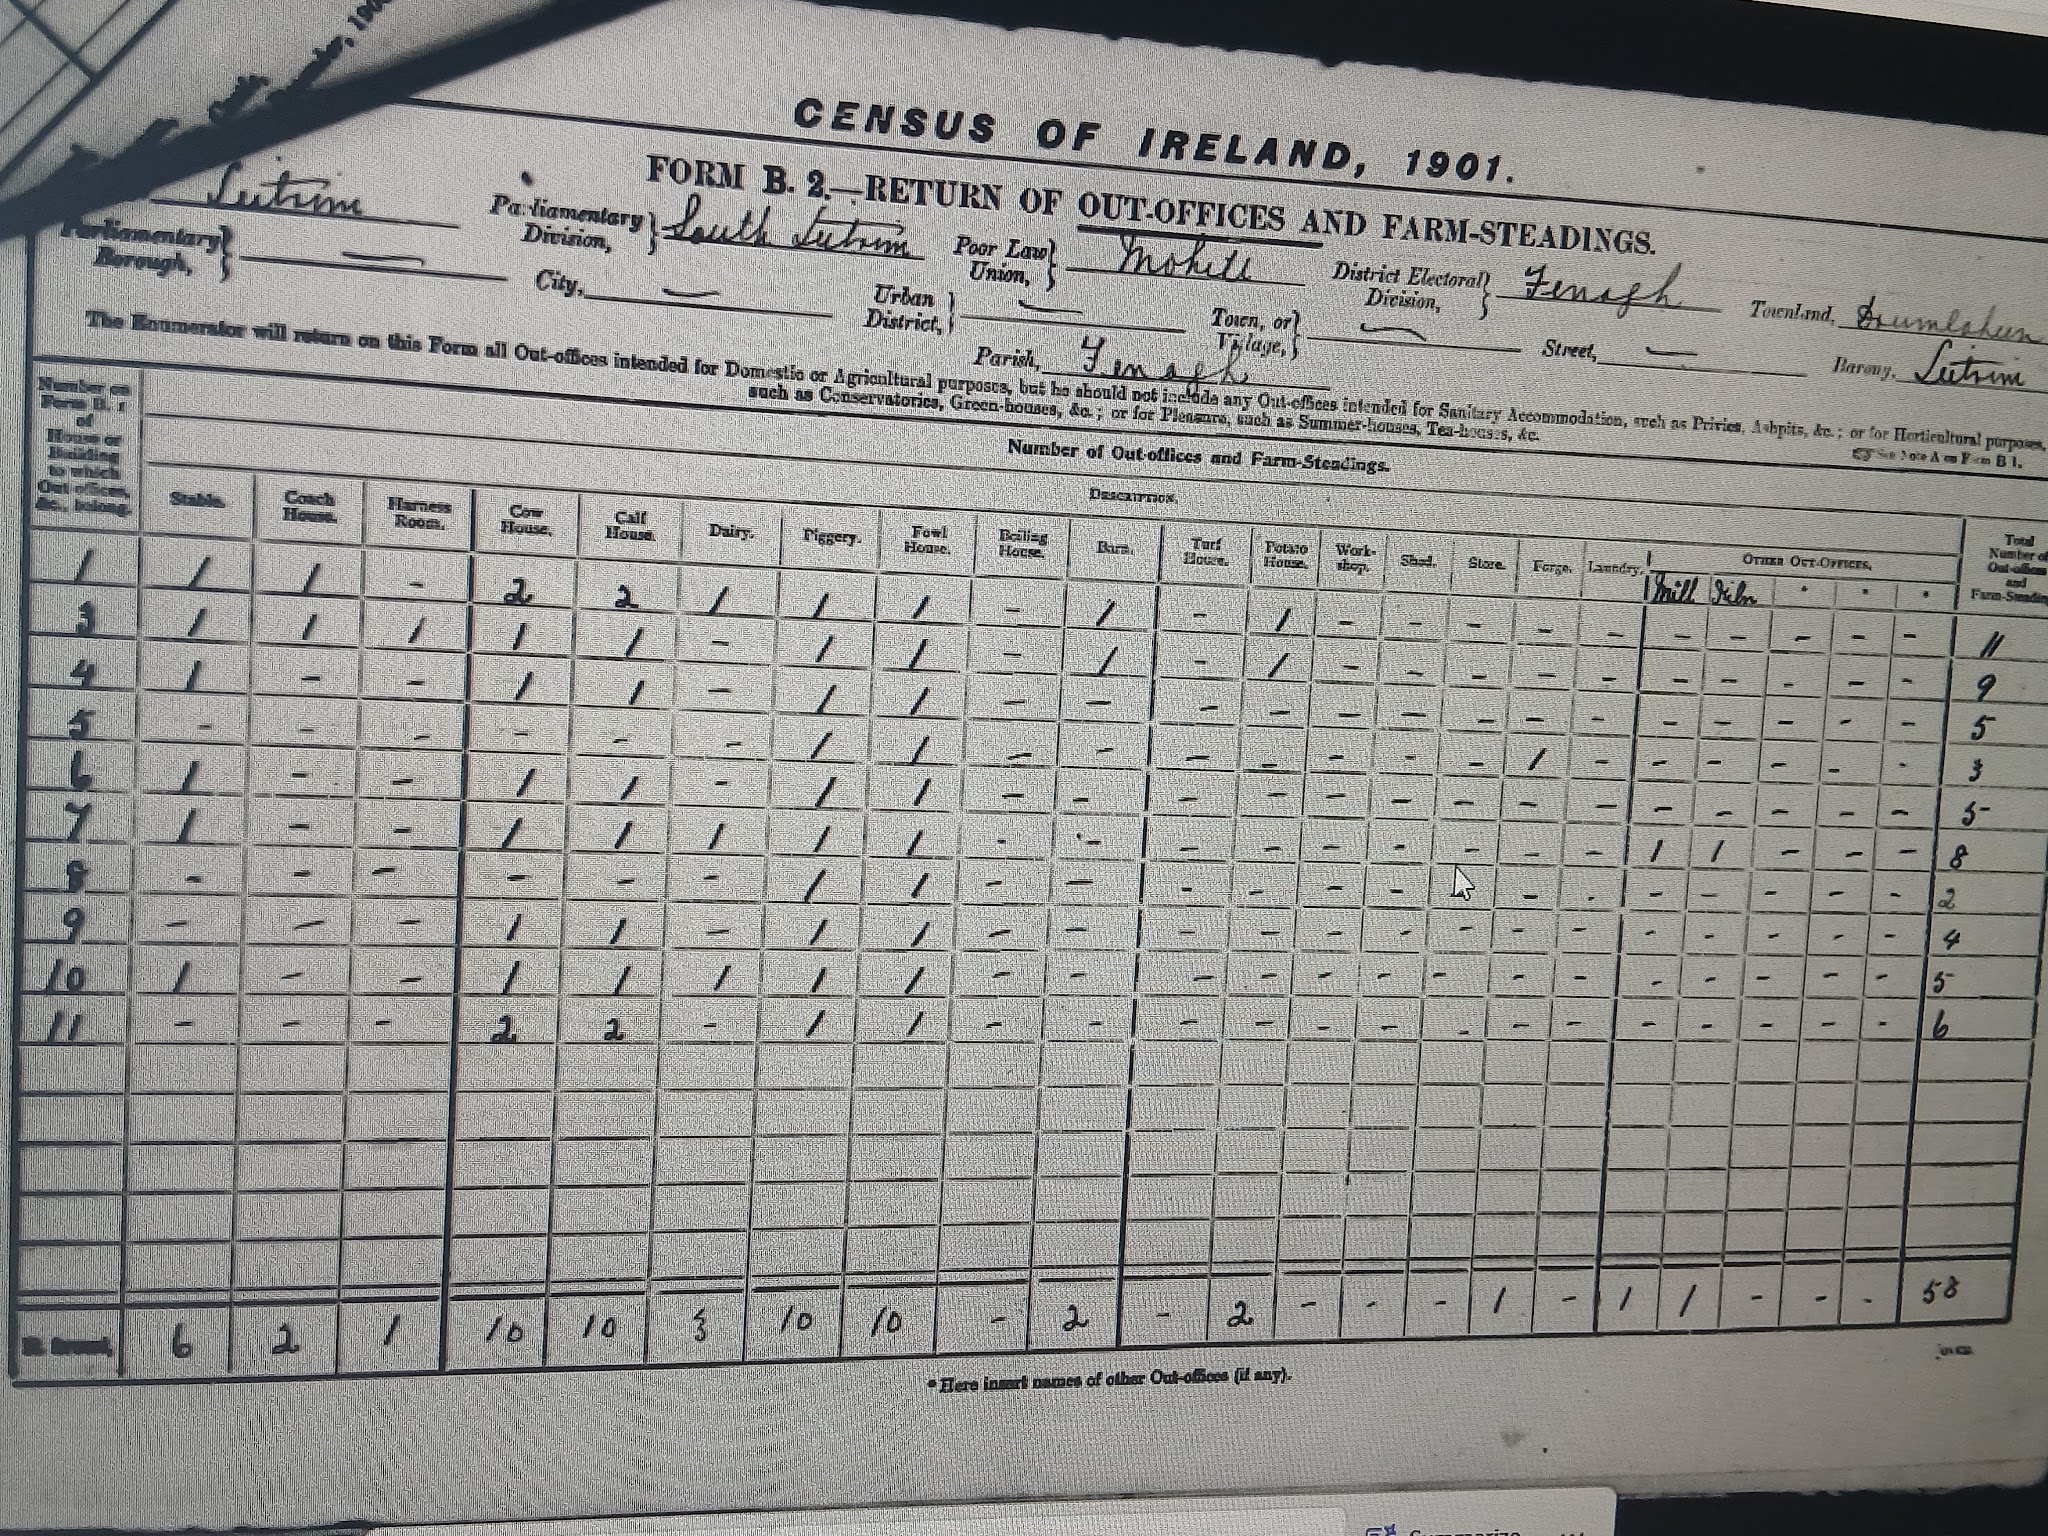 CENSUS OF IRELAND, 1901.
FORM B. 2.—RETURN OF OUT-OFFICES AND FARM-STEADINGS.
Leitrim Parliamentary Division, South Leitrim Poor Law Union, Mohill District Electoral Division, Fenagh Townland, Drumlaheen
Parliamentary Borough, — City, — Urban District, — Town, or Village, — Street, — Barony, Leitrim
Parish, Fenagh
The Enumerator will return on this Form all Out-offices intended for Domestic or Agricultural purposes, but he should not include any Out-offices intended for Sanitary Accommodation, such as Privies, Ashpits, &c.; or for Horticultural purposes,
such as Conservatories, Green-houses, &c.; or for Pleasure, such as Summer-houses, Tea-houses, &c.
See Note A on Form B 1.
Number on Form B. 1 of House or Building to which Out-offices, &c., belong.
Number of Out-offices and Farm-Steadings.
DESCRIPTION.
Stable. Coach House. Harness Room. Cow House. Calf House. Dairy. Piggery. Fowl House. Boiling House. Barn. Turf House. Potato House. Work-shop. Shed. Store. Forge. Laundry. OTHER OUT-OFFICES. Total Number of Out-offices and Farm-Steadin
Mill Kiln * * *
1 1 1 - 2 2 1 1 1 - 1 - 1 - - - - - - - - - - 11
3 1 1 1 1 1 - 1 1 - 1 - 1 - - - - - - - - - - 9
4 1 - - 1 1 - 1 1 - - - - - - - - - - - - - - 5
5 - - - - - - 1 1 - - - - - - - 1 - - - - - - 3
6 1 - - 1 1 - 1 1 - - - - - - - - - - - - - - 5
7 1 - - 1 1 1 1 1 - - - - - - - - - 1 1 - - - 8
8 - - - - - - 1 1 - - - - - - - - - - - - - 2
9 - - - 1 1 - 1 1 - - - - - - - - - - - - - - 4
10 1 - - 1 1 1 1 1 - - - - - - - - - - - - - - 5
11 - - - 2 2 - 1 1 - - - - - - - - - - - - - - 6
6 2 1 10 10 3 10 10 - 2 - 2 - - - 1 - 1 1 - - - 58
* Here insert names of other Out-offices (if any).